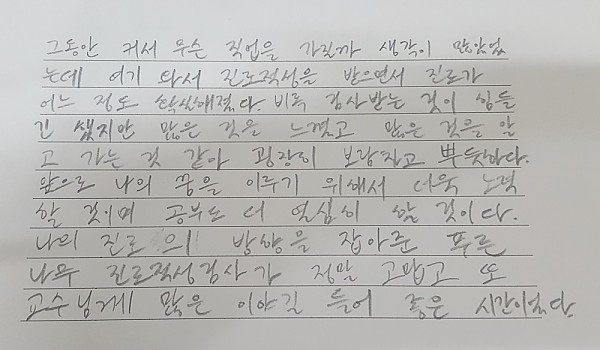 그동안 커서 무슨 직업을 가질까 생각이 많았었
는데 여기 와서 진로적성을 받으면서 진로가
어느 정도 확실해졌다. 비록 검사받는 것이 힘들
긴 했지만 많은 것을 느꼈고 많은 것을 알
고 가는 것 같아 굉장히 보람차고 뿌듯하다.
앞으로 나의 꿈을 이루기 위해서 더욱 노력
할 것이며 공부도 더 열심히 할 것이다.
나의 진로의 방향을 잡아준 푸른
나무 진로적성검사가 정말 고맙고 또
교수님께 많은 이야길 들어 좋은 시간이었다.